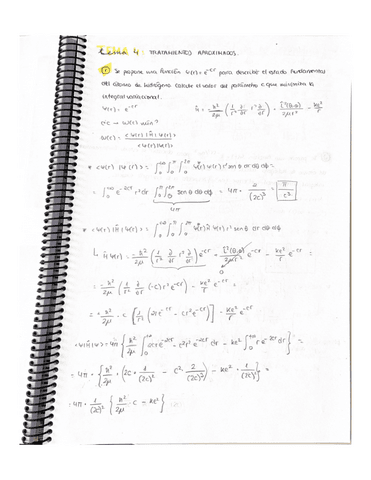 Tema 4: TRATAMIENTOS APROXIMADOS.
1 Se propone una función Ψ(r) = e^-cr para describir el estado fundamental
del átomo de hidrógeno. Calcule el valor del parámetro c que minimiza la
integral variacional.
Ψ(r) = e^-cr   Ĥ = -ħ²/2μ (1/r² ∂/∂r r² ∂/∂r) + L̂²(θ,φ)/2μr² - ke²/r
W(c) = <Ψ(r)|Ĥ|Ψ(r)> / <Ψ(r)|Ψ(r)>
* <Ψ(r)|Ψ(r)> = ∫₀^∞ ∫₀^π ∫₀^2π Ψ*(r) Ψ(r) r² sen θ dr dθ dφ =
= ∫₀^∞ e^-2cr r² dr ∫₀^π ∫₀^2π sen θ dθ dφ = 4π · 2/(2c)³ = π/c³
4π
* <Ψ(r)|Ĥ|Ψ(r)> = ∫₀^∞ ∫₀^π ∫₀^2π Ψ*(r) Ĥ Ψ(r) r² sen θ dr dθ dφ =
Ĥ Ψ(r) = -ħ²/2μ (1/r² ∂/∂r r² ∂/∂r) e^-cr + L̂²(θ,φ)/2μr² e^-cr - ke²/r e^-cr =
= -ħ²/2μ (1/r² ∂/∂r (-c) r² e^-cr) - ke²/r e^-cr =
= + ħ²/2μ · c [1/r² (2r e^-cr - c r² e^-cr)] - ke²/r e^-cr =
<Ψ|Ĥ|Ψ> = 4π { ħ²/2μ ∫₀^∞ 2cr e^-2cr - c² r² e^-2cr dr - ke² ∫₀^∞ r e^-2cr dr } =
= 4π · { ħ²/2μ · (2c · 1/(2c)² - c² · 2/(2c)³) - ke² · 1/(2c)² } =
= 4π · 1/(2c)² { ħ²/2μ · c - ke² }